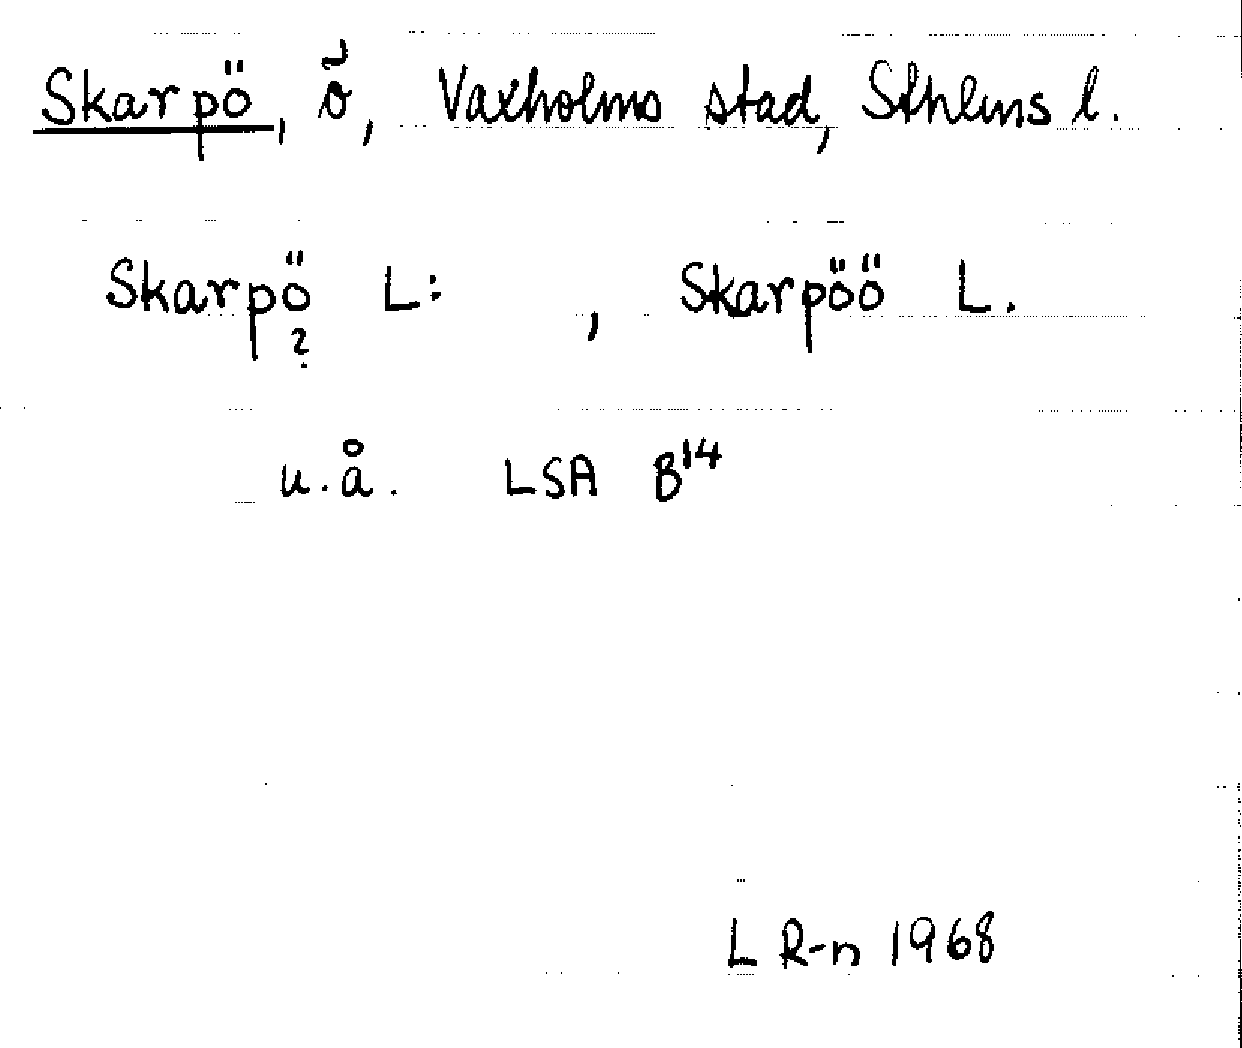 Skarpö, ö, Vaxholms stad, Sthlms l.
Skarpö L: , Skarpöö L.
?
u.å. LSA B14
L R-n 1968